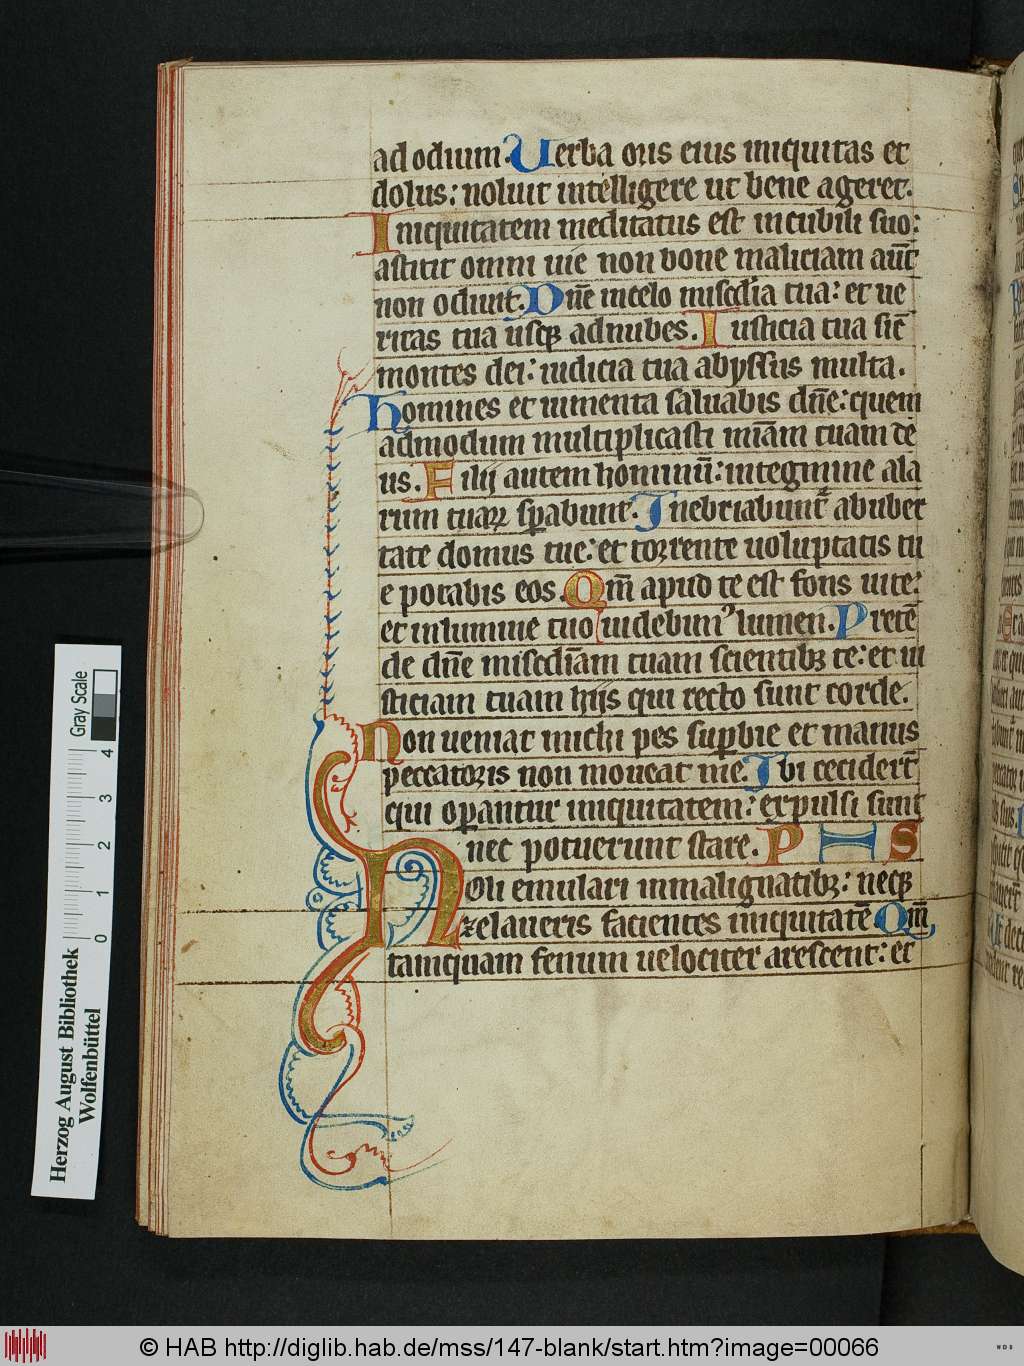 ad odium. Verba oris eius iniquitas et
dolus: noluit intelligere ut bene ageret.
Iniquitatem meditatus est in cubili suo:
astitit omni uie non bone maliciam aut̄
non odiuit. Dn̄e in celo misc̄dia tua: et ue
ritas tua usqꝫ ad nubes. Iusticia tua sic̄
montes dei: iudicia tua abyssus multa.
Homines et iumenta saluabis dn̄e: quem
admodum multiplicasti mīam tuam dē
us. Filij autem hominū: in tegmine ala
rum tuaꝝ sꝑabunt. Inebriabunt᷑ ab uber
tate domus tue: et torrente uoluptatis tu
e potabis eos. Qm̄ apud te est fons uite:
et in lumine tuo uidebimꝰ lumen. Pretē
de dn̄e misc̄diam tuam scientibꝫ te: et iu
sticiam tuam hijs qui recto sunt corde.
Non ueniat michi pes suꝑbie et manus
peccatoris non moueat me. Ibi cecidert̄
qui oꝑantur iniquitatem: expulsi sunt
nec potuerunt stare. PHS
Noli emulari in malignatibꝫ: neqꝫ
zelaueris facientes iniquitatē Qm̄
tamquam fenum uelociter arescent: et
Herzog August Bibliothek
Wolfenbüttel
Gray Scale
0 1 2 3 4
© HAB http://diglib.hab.de/mss/147-blank/start.htm?image=00066